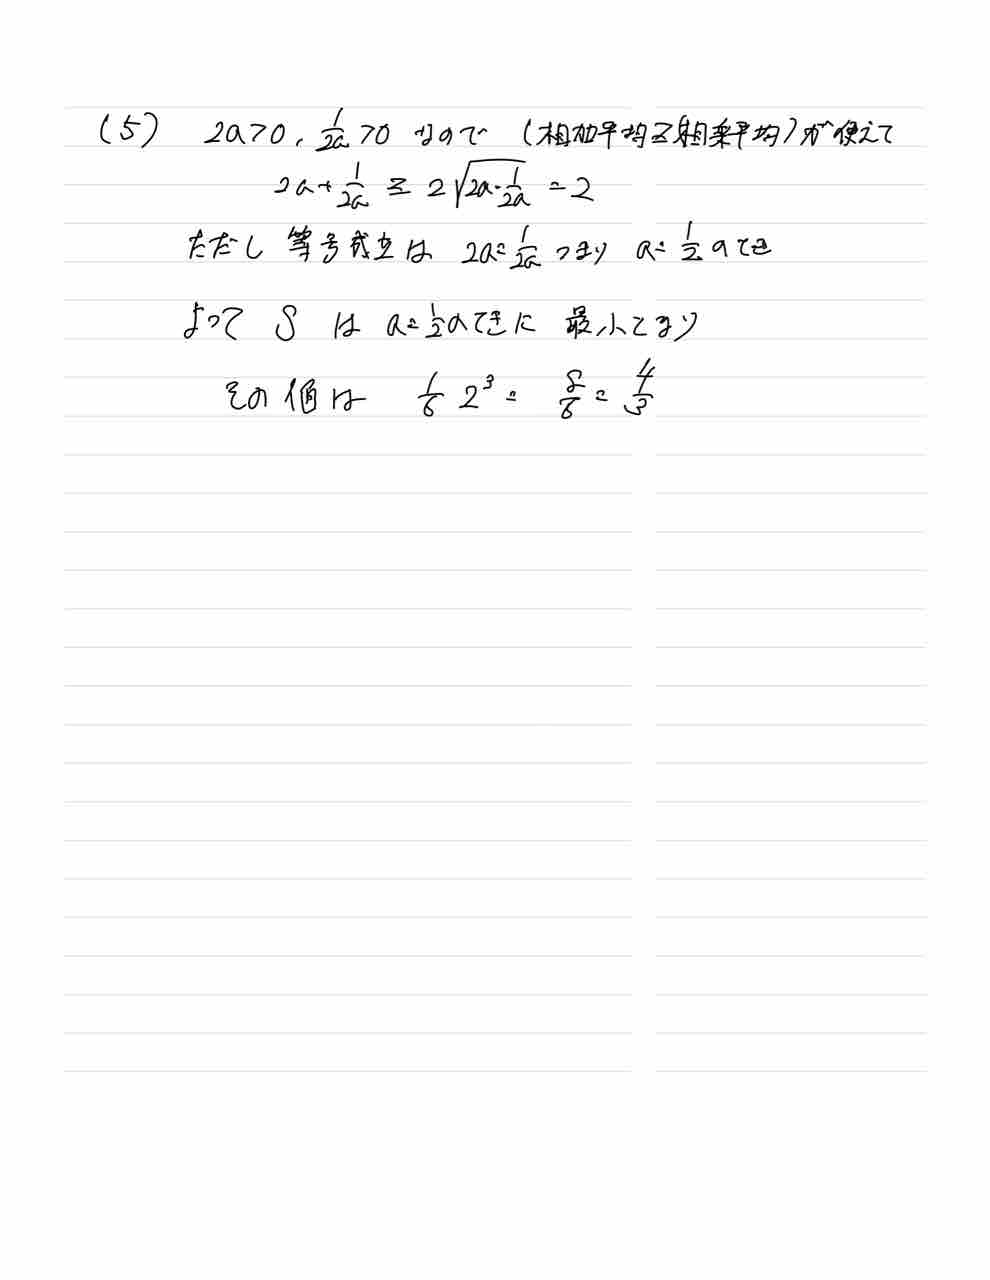 (5) 2a>0, 1/2a>0 なので (相加平均≧相乗平均)が使えて
2a+1/2a ≧ 2√(2a・1/2a) = 2
ただし 等号成立は 2a=1/2a つまり a=1/2 のとき
よって S は a=1/2のときに 最小となり
その値は 1/6 2³ = 8/6 = 4/3